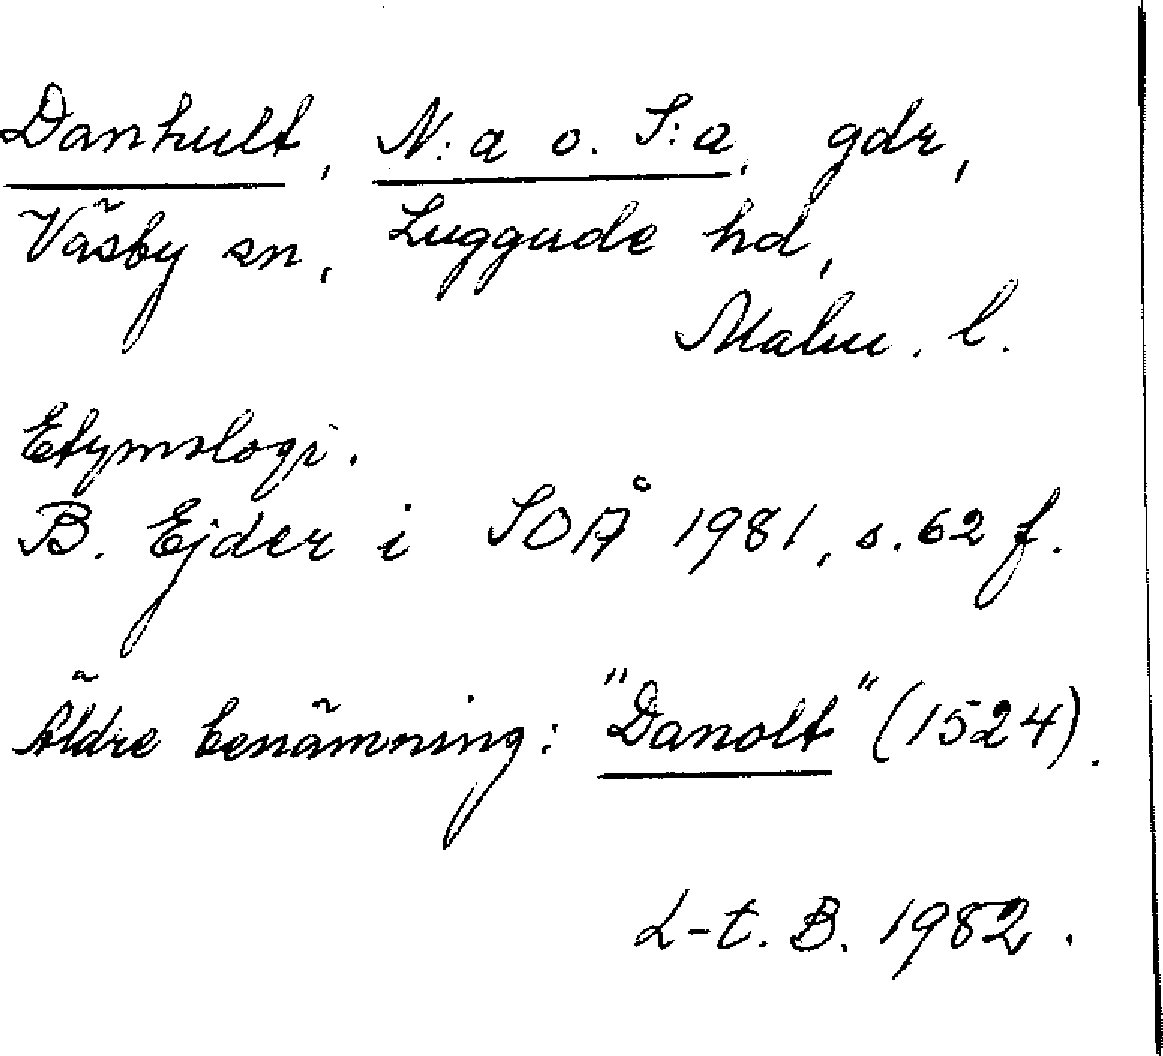 Danhult, N:a o. S:a, gdr,
Väsby sn, Luggude hd,
Malm. l.
Etymologi.
B. Ejder i SOÅ 1981, s. 62 f.
Äldre benämning: "Danolt" (1524).
L-t. B. 1982.